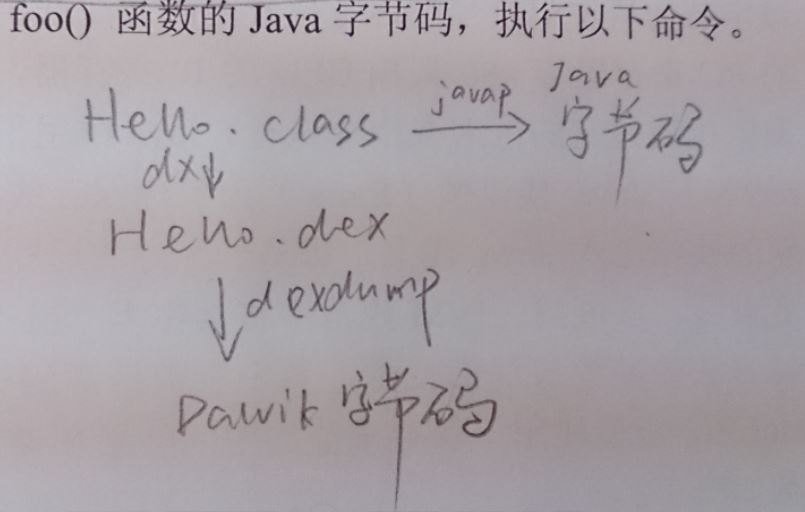 foo() 函数的 Java 字节码，执行以下命令。
Hello.class javap → Java 字节码
dx↓
Hello.dex
↓dexdump
Dalvik 字节码